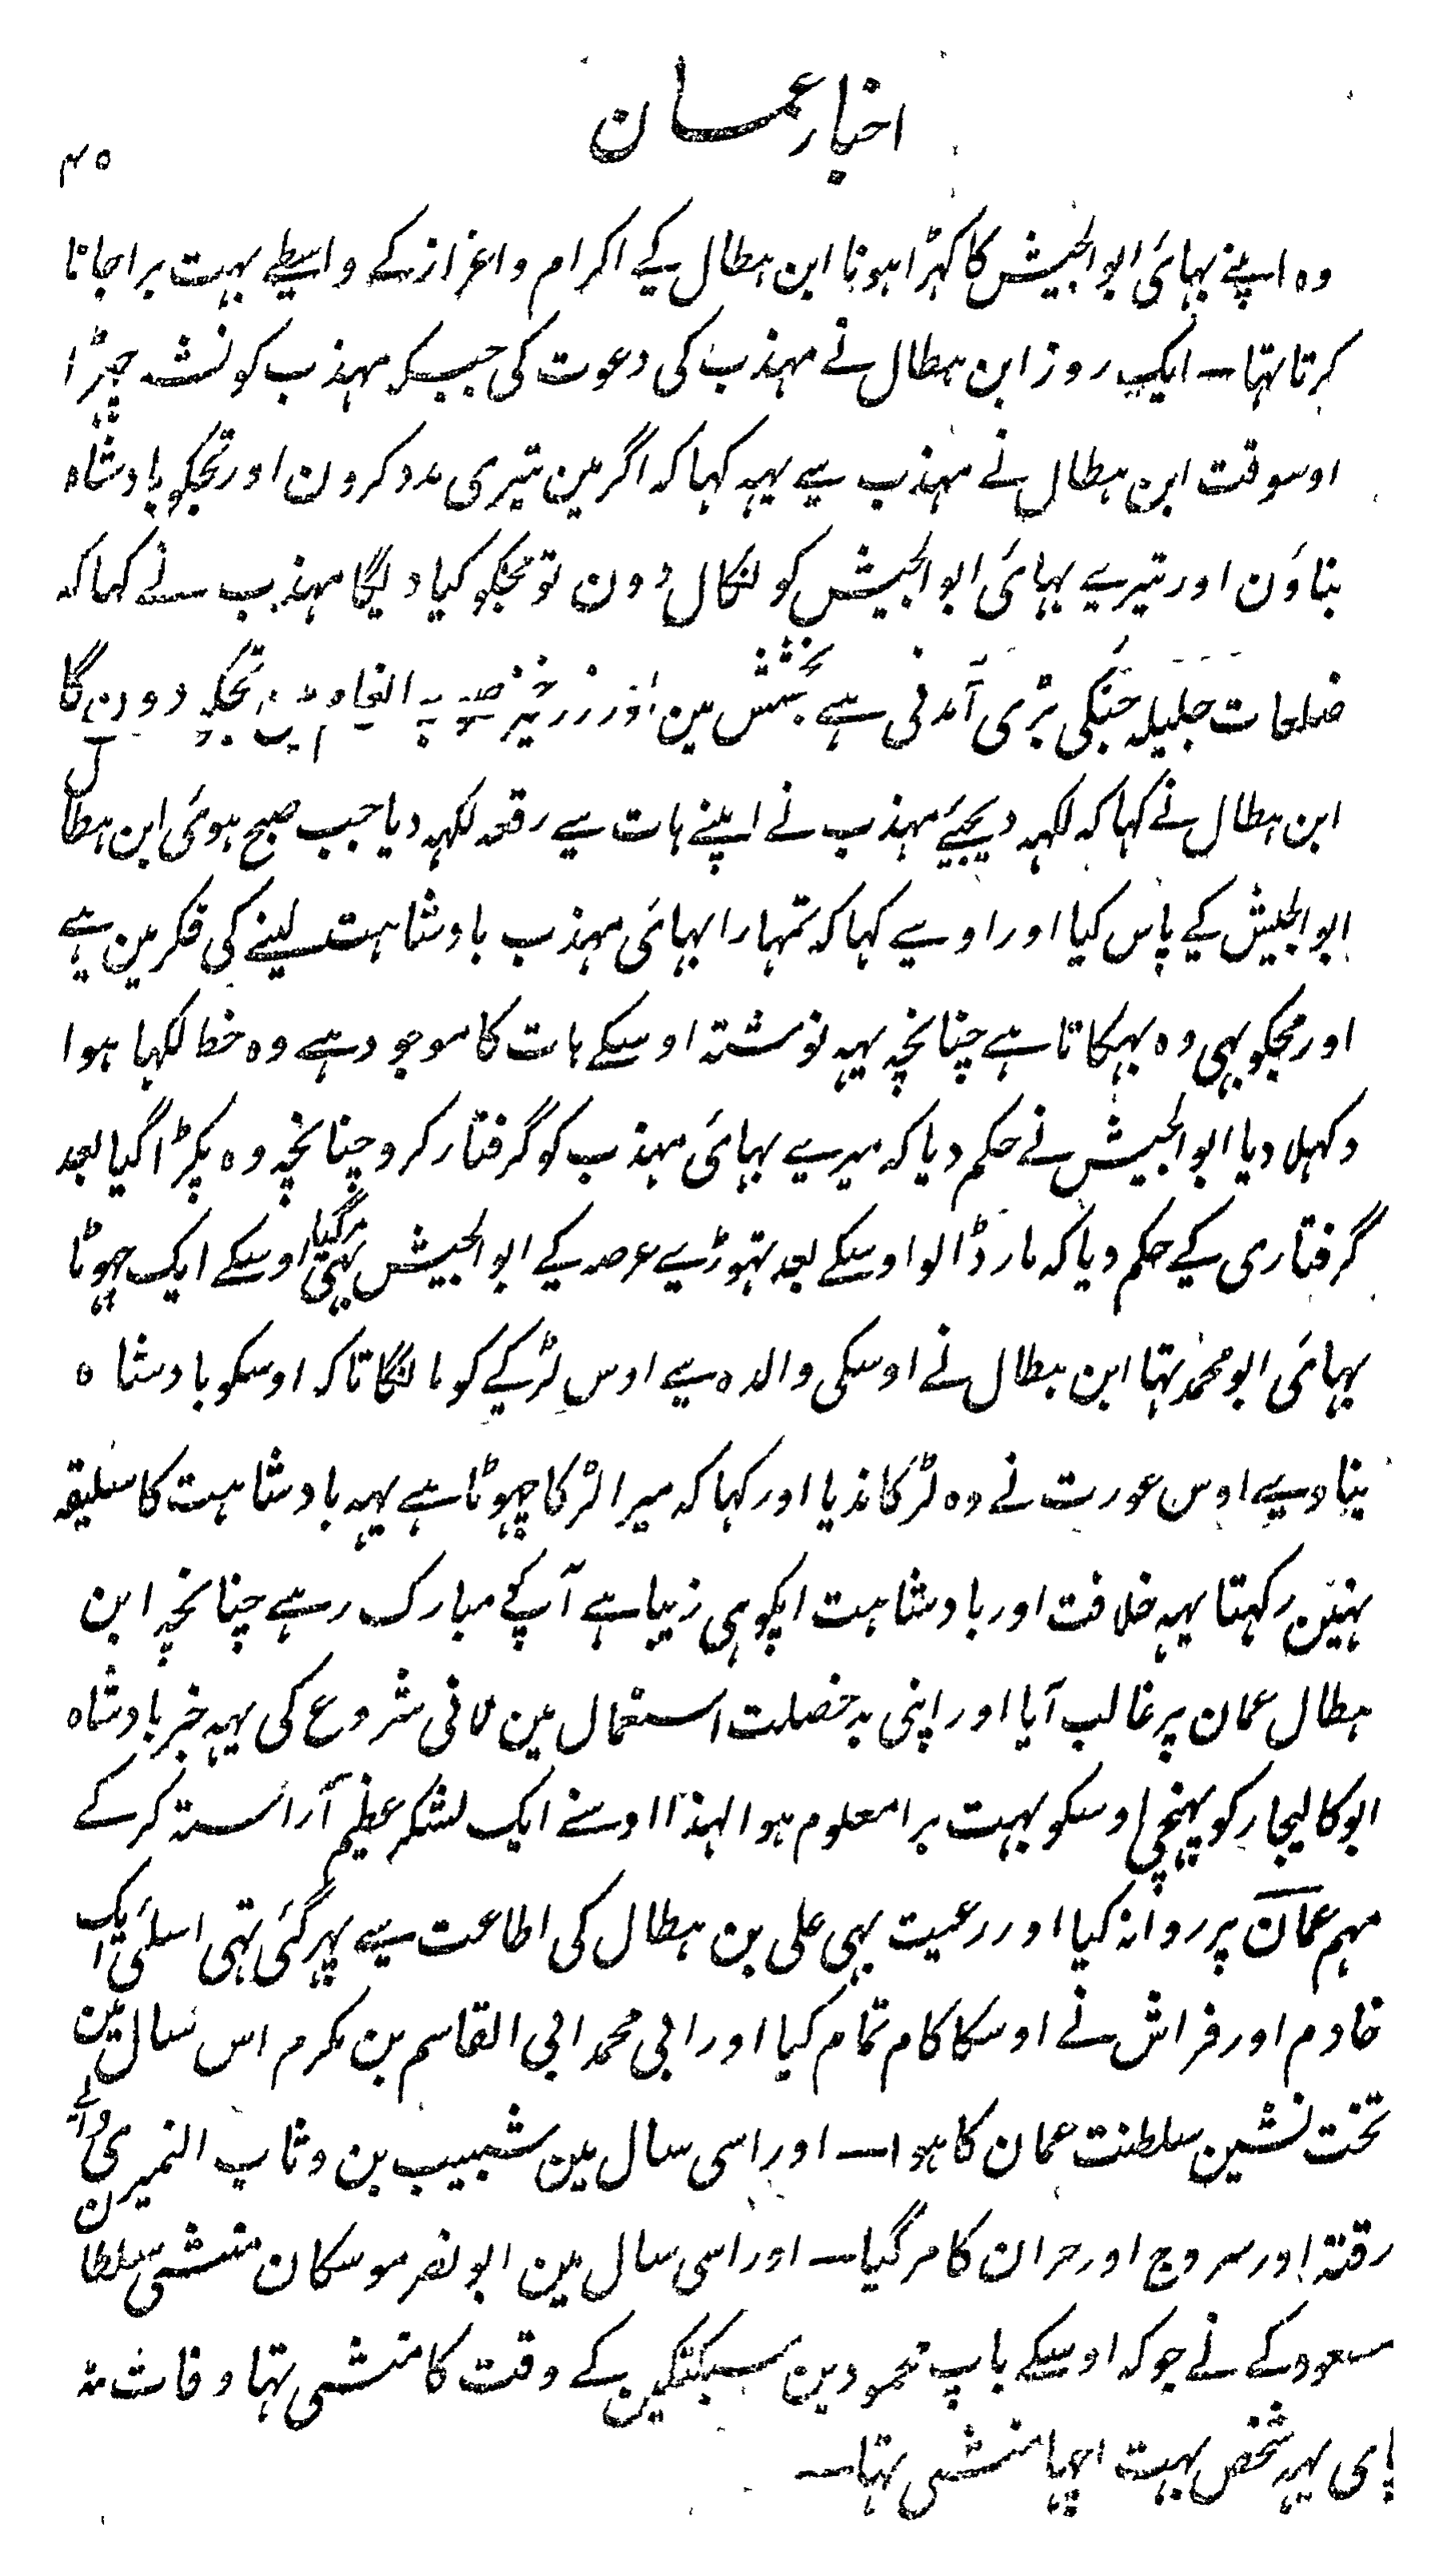 اخبار عمان
۴۵
وہ اپنے بہائی ابو الجیش کا کہڑا ہونا ابن ہطال کے اکرام و اعزاز کے واسطے بہت برا جانا
کرتا تہا۔ ایک روز ابن ہطال نے مہذب کی دعوت کی جب کہ مہذب کو نشہ چڑا
اوسوقت ابن ہطال نے مہذب سے یہہ کہا کہ اگر مین تیری مدد کرون اور تجکو بادشاہ
بناؤن اور تیرے بہائی ابو الجیش کو نکال دون تو مجکو کیا دیگا مہذب نے کہا کہ
ضلعات جلیلہ جنکی بڑی آمدنی ہے بخشش مین اور زرخیز صوبہ انعام مین تجکو دون گا
ابن ہطال نے کہا کہ لکہہ دیجیے مہذب نے اپنے ہات سے رقعہ لکہہ دیا جب صبح ہوئی ابن ہطال
ابو الجیش کے پاس کیا اور اوسے کہا کہ تمہارا بہائی مہذب بادشاہت لینے کی فکر مین ہے
اور مجکو بہی وہ بہکاتا ہے چنانچہ یہہ نوشتہ اوسکے ہات کا موجود ہے وہ خط لکہا ہوا
دکہلا دیا ابو الجیش نے حکم دیا کہ میرے بہائی مہذب کو گرفتار کرو چنانچہ وہ پکڑا گیا بعد
گرفتاری کے حکم دیا کہ مار ڈالو اوسکے بعد تہوڑے عرصہ کے ابو الجیش بہی مرگیا اوسکے ایک چہوٹا
بہائی ابو محمد تہا ابن ہطال نے اوسکی والدہ سے اوس لڑکے کو مانگا تا کہ اوسکو بادشاہ
بنا دیے اوس عورت نے وہ لڑکا ندیا اور کہا کہ میرا لڑکا چہوٹا ہے یہہ بادشاہت کا سلیقہ
نہین رکہتا یہہ خلافت اور بادشاہت اپکو ہی زیبا ہے آپکے مبارک رہے چنانچہ ابن
ہطال عمان پر غالب آیا اور اپنی بد خصلت استعمال مین لانی شروع کی یہہ خبر بادشاہ
ابو کالیجار کو پہنچی اوسکو بہت برا معلوم ہوا لہذا اوسنے ایک لشکر عظیم آراستہ کر کے
مہم عمان پر روانہ کیا اور رعیت بہی علی بن ہطال کی اطاعت سے پہر گئی تہی اسلئی ایک
خادم اور فراش نے اوسکا کام تمام کیا اور ابی محمد ابی القاسم بن مکرم اس سال مین
تخت نشین سلطنت عمان کا ہوا۔ اور اسی سال مین شبیب بن وثاب النمیری والئے
رقتہ اور سروج اور حران کا مرگیا۔ اور اسی سال مین ابو نصر موسکان منشی سلطان
مسعود کے نے جو کہ اوسکے باپ محمود بن سبکتکین کے وقت کا منشی تہا وفات
پای یہہ شخص بہت اچہا منشی تہا۔